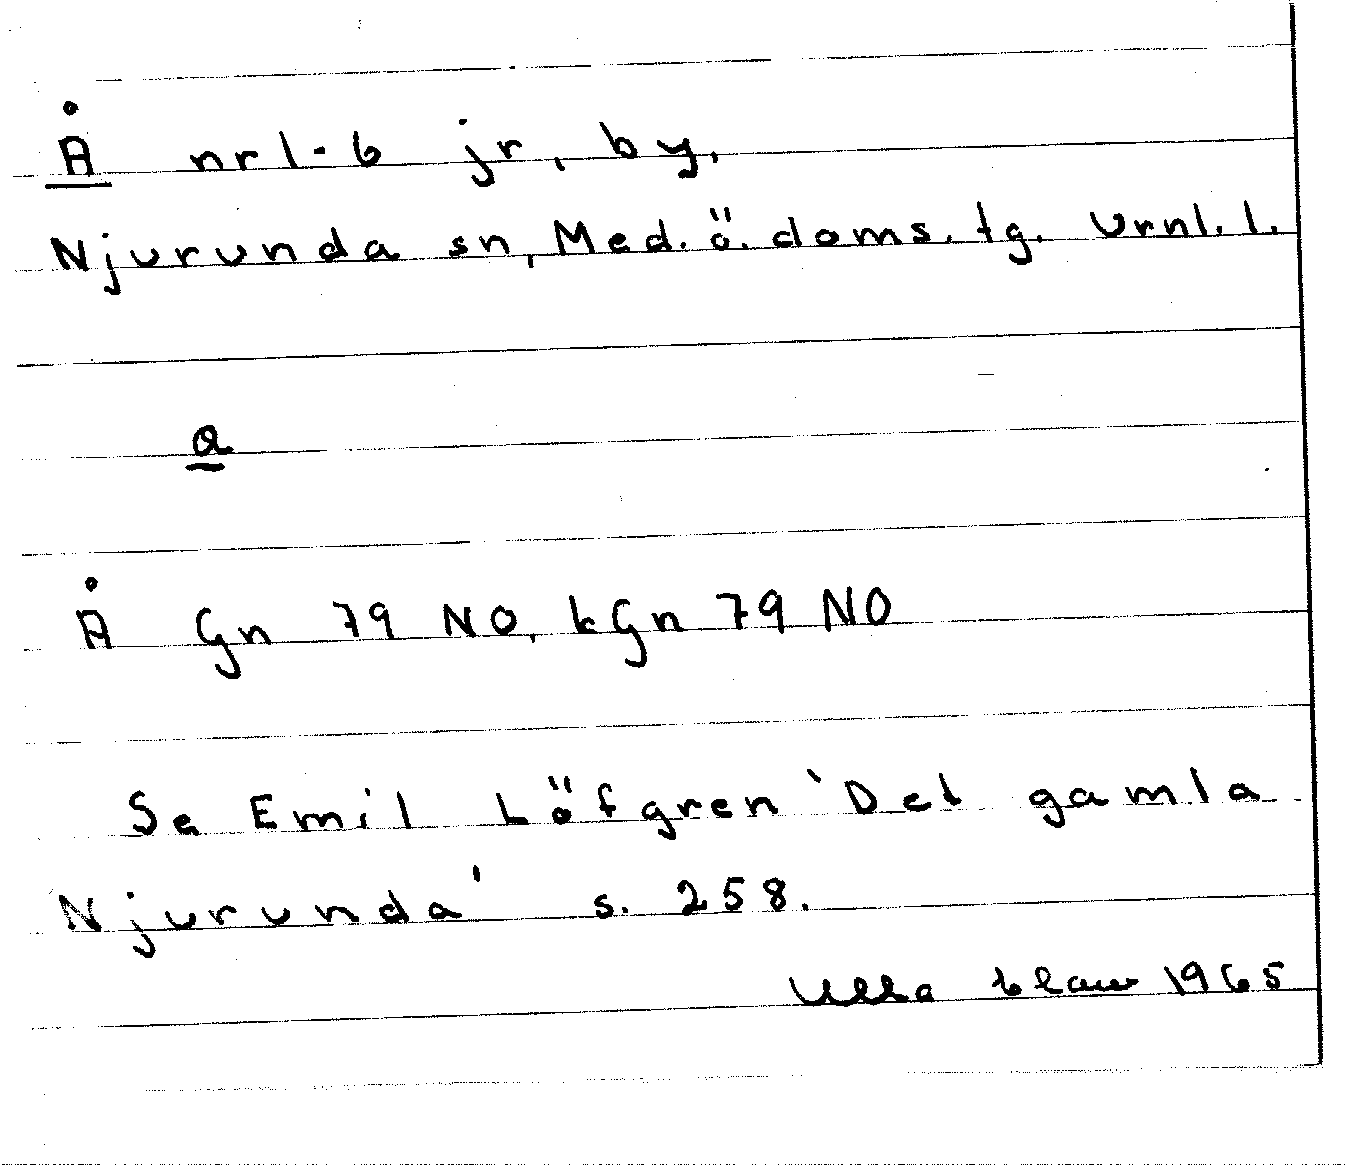 Å nr 1-6 jr, by,
Njurunda sn, Med. ö. doms. tg. Vrnl. l.
a
Å Gn 79 NO, kGn 79 NO
Se Emil Löfgren 'Det gamla
Njurunda' s. 258.
Ulla 1965